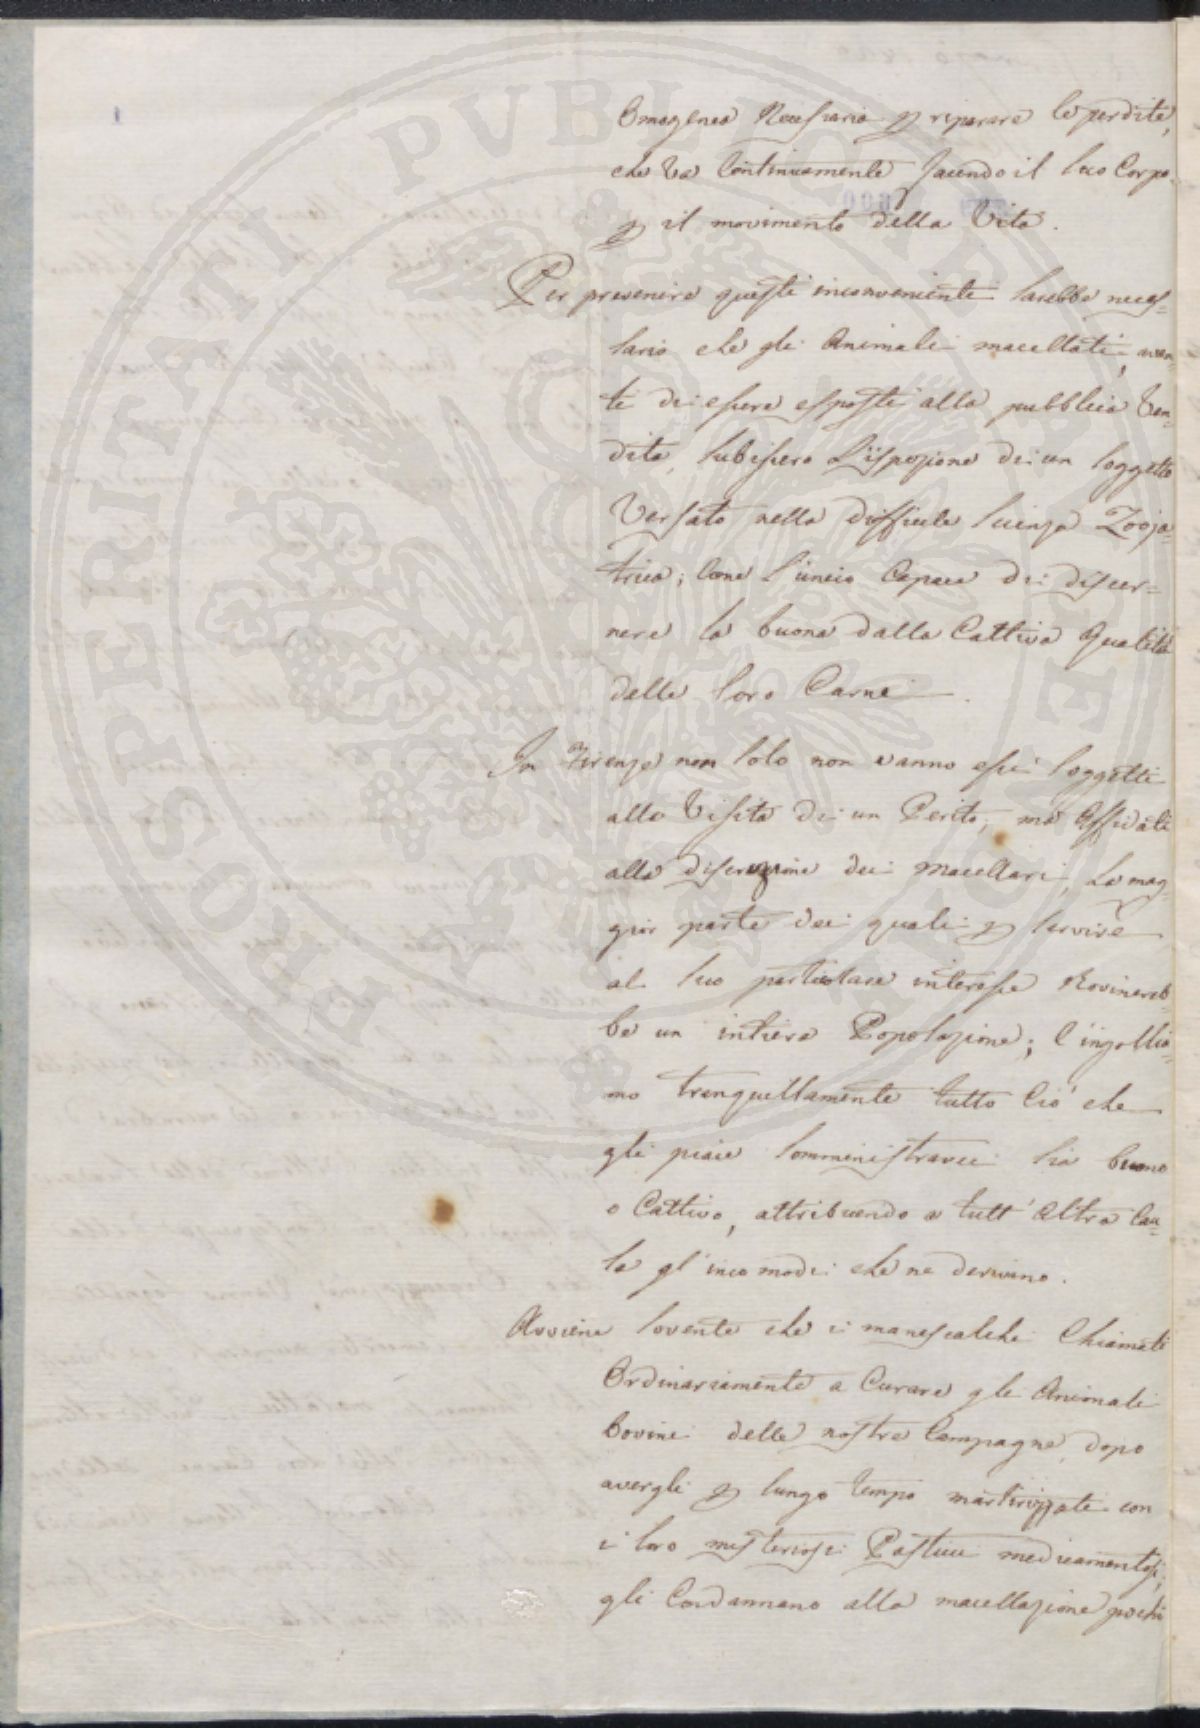 Omogenea Necessaria p riparare le perdite,
che va Continuamente facendo il suo Corpo
p il movimento della Vita.
Per prevenire questi inconvenienti sarebbe neces=
sario che gli Animali macellati, avan=
ti di essere esposti alla pubblica Ven=
dita, subissero L'ispezione di un soggetto
Versato nella difficile scienza Zooja=
trica; Come l'unico Capace di discer=
nere la buona dalla Cattiva Qualità
delle loro Carni.
In Firenze non solo non vanno essi soggetti
alla Visita di un Perito, ma Affidati
alla discrezione dei Macellari, La mag=
gior parte dei quali p servire
al suo particolare interesse Rovinereb=
be un intiera Popolazione; l'ingollia=
mo tranquillamente tutto Ciò che
gli piace somministrarci sia buono
o Cattivo, attribuendo a tutt'Altra Cau=
sa gl'incomodi che ne derivano.
Avviene sovente che i manescalchi Chiamati
Ordinariamente a Curare gli Animali
Bovini delle nostre Campagne, dopo
avergli p lungo tempo martirizzati con
i loro misteriosi Pasticci medicamentosi,
gli Condannano alla macellazione pochi
PROSPERITATI PVBLICAE AVGENDAE